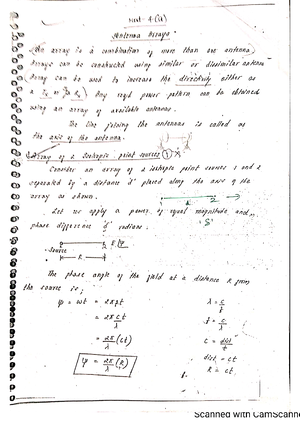 Unit 4 (A)
Antenna Arrays
An array is a combination of more than one antenna.
Arrays can be constructed using similar or dissimilar antenna
Array can be used to increase the directivity either as
a Tx or Rx. Any reqd power pattern can be obtained
using an array of available antennas.
The line joining the antennas is called as
the axis of the antenna.
Array of 2 Isotropic point sources (1)
Consider an array of 2 isotropic point sources 1 and 2
separated by a distance 'd' placed along the axis of the
array as shown.
Let us apply a power of equal magnitude and
phase difference 'δ' radians.
Source
R
The phase angle of the field at a distance R from
the source is;
ψ = ωt = 2πft
λ = c/f
= 2π c/λ t
f = c/λ
= 2π/λ (ct)
c = dist/t
dist = ct
ψ = 2π/λ (R)
R = ct
Scanned with CamScanne